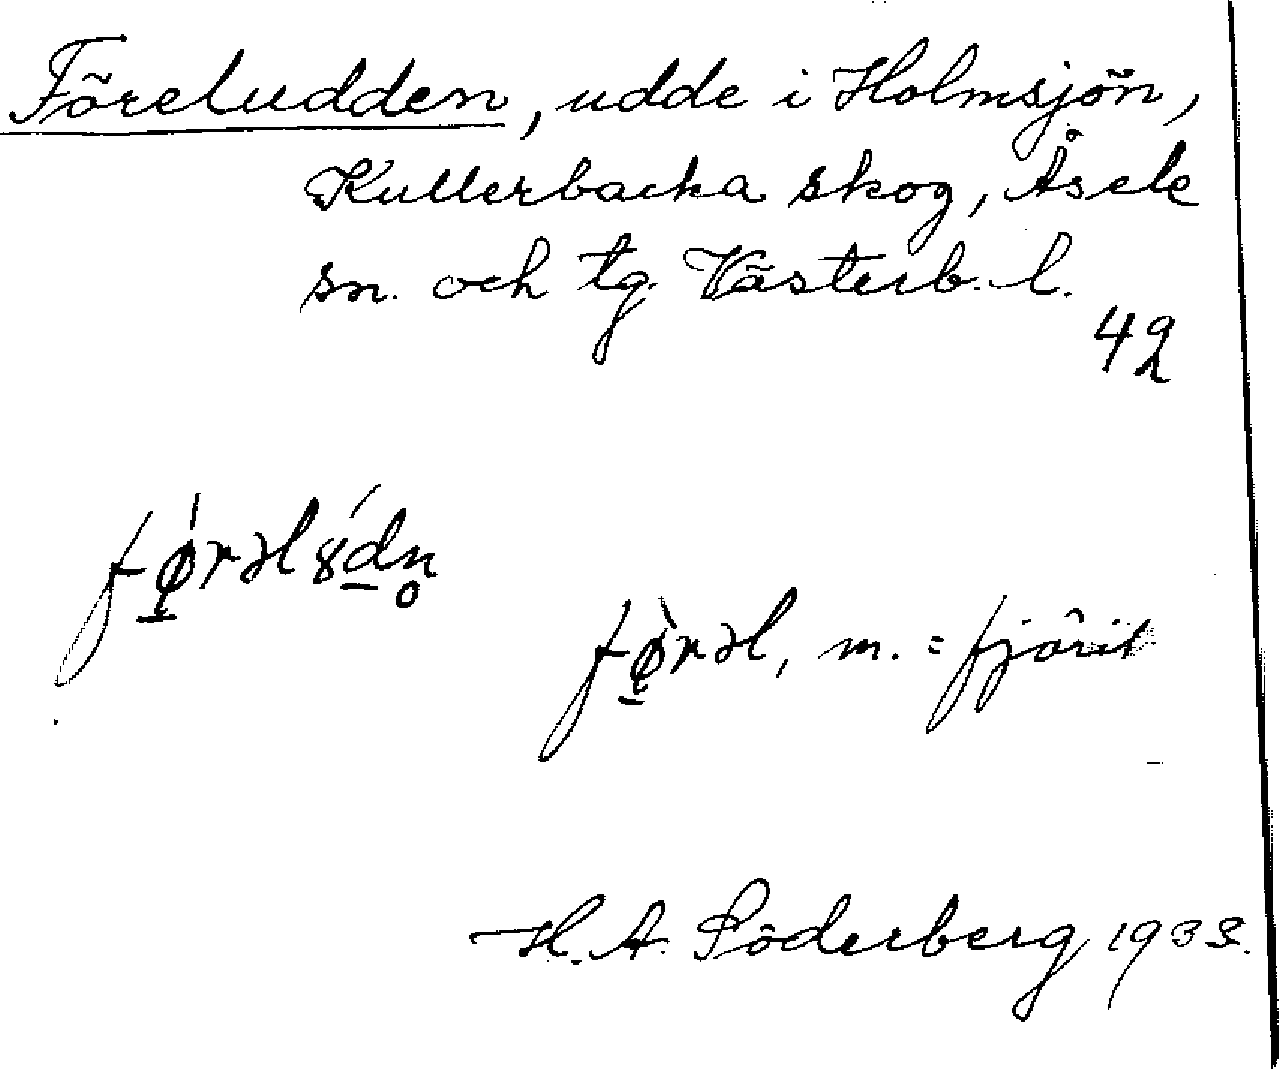 Föreludden, udde i Holmsjön,
Kullerbacka skog, Åsele
sn. och tg. Västerb. l.
42
fǿ̱rəl8́ḏn̥
fø̱̀rəl, m. = fjäril
H. A. Söderberg 1933.